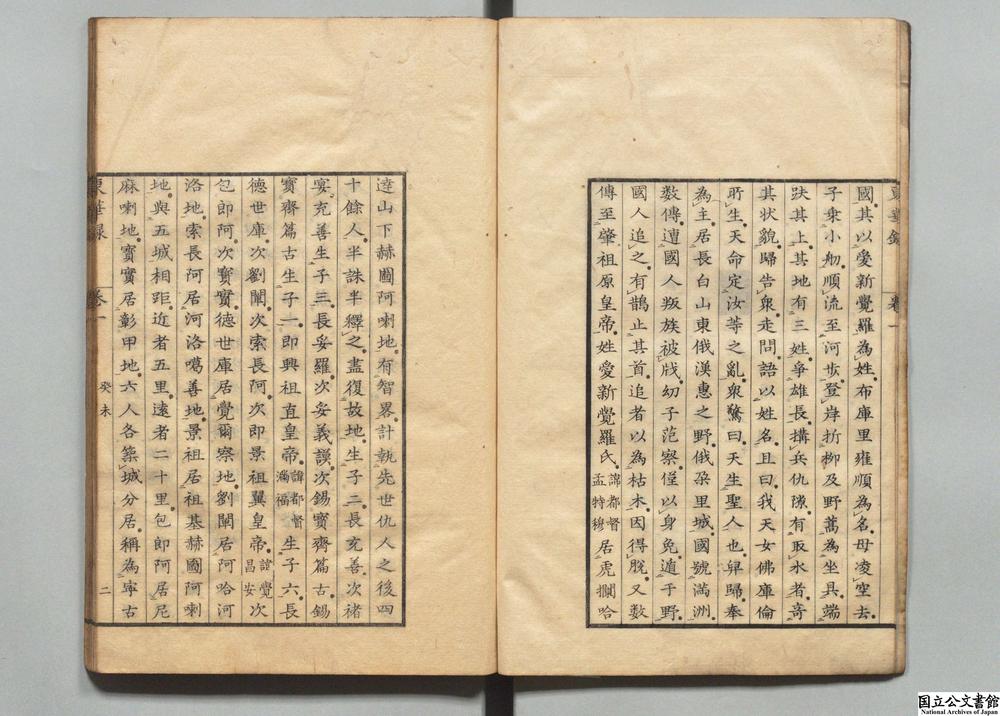 國其以愛新覺羅為姓布庫里雍順為名母凌空去
子乘小舠順流至河步登岸折柳及野蒿為坐具端
趺其上其地有三姓爭雄長搆兵仇隙有取水者奇
其狀貌歸告衆走問語以姓名且曰我天女佛庫倫
所生天命定汝等之亂衆驚曰天生聖人也舁歸奉
為主居長白山東俄漢惠之野俄朶里城國號滿洲
數傳遭國人叛族被戕幼子范察僅以身免遁于野
國人追之有鵲止其首追者以為枯木因得脫又數
傳至肇祖原皇帝姓愛新覺羅氏諱都督孟特穆居虎攔哈
東華錄 卷一
達山下赫圖阿喇地有智畧計執先世仇人之後四
十餘人半誅半釋之盡復故地生子二長充善次褚
宴充善生子三長妥羅次妥義謨次錫寶齊篇古錫
寶齊篇古生子一即興祖直皇帝諱都督滿福生子六長
德世庫次劉闡次索長阿次即景祖翼皇帝諱覺昌安次
包即阿次寶實德世庫居覺爾察地劉闡居阿哈河
洛地索長阿居河洛噶善地景祖居祖基赫圖阿喇
地與五城相距近者五里遠者二十里包即阿居尼
麻喇地寶實居彰甲地六人各築城分居稱為寧古
東華錄 卷一 癸未 二
国立公文書館
National Archives of Japan